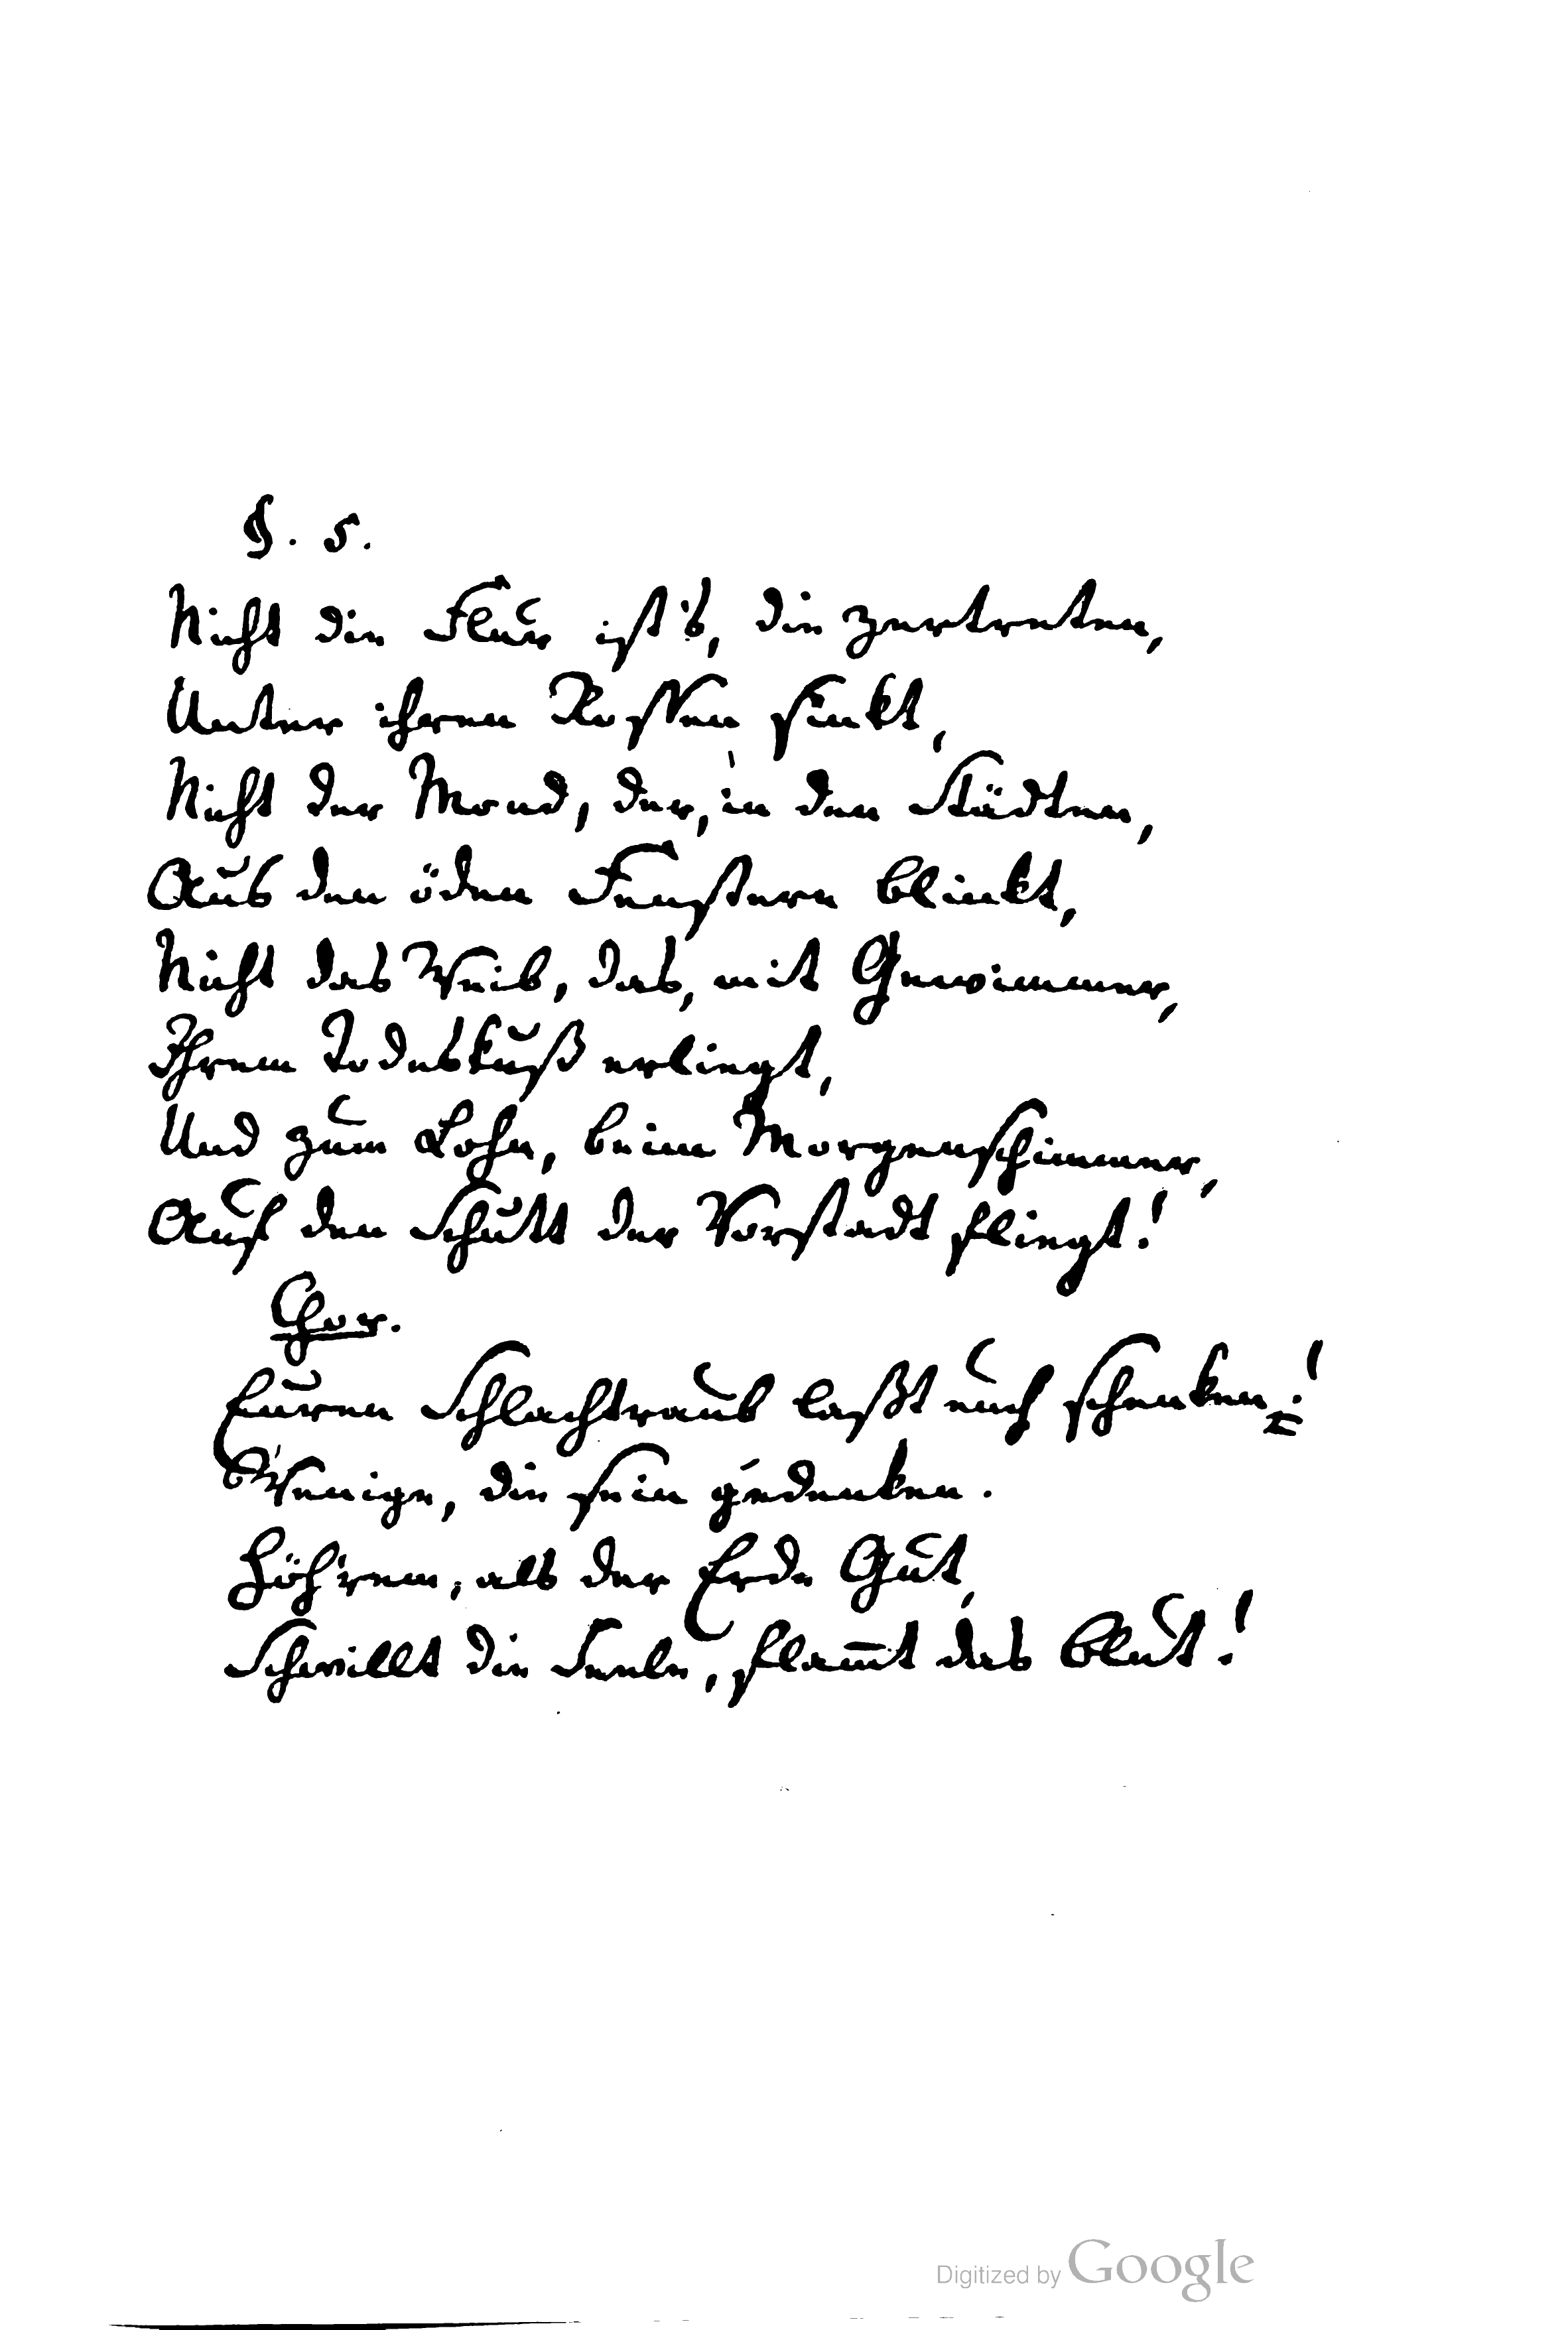 §. 5.
Nicht die Flur ist's, die zertreten,
Unter ihren Rossen sinkt,
Nicht der Mond, der, in den Städten,
Aus den öden Fenstern blinkt,
Nicht das Weib, das, mit Gewimmer,
Ihrem Todeskuß erliegt,
Und zum Lohn, beim Morgenschimmer,
Auf den Schutt der Vorstadt fliegt!
Chor.
Euren Schlachtraub laßt euch schenken!
Wenige, die sein gedenken.
Höh'rem, als der Erde Gut,
Schwillt die Seele, flam̅t das Blut!
Digitized by Google